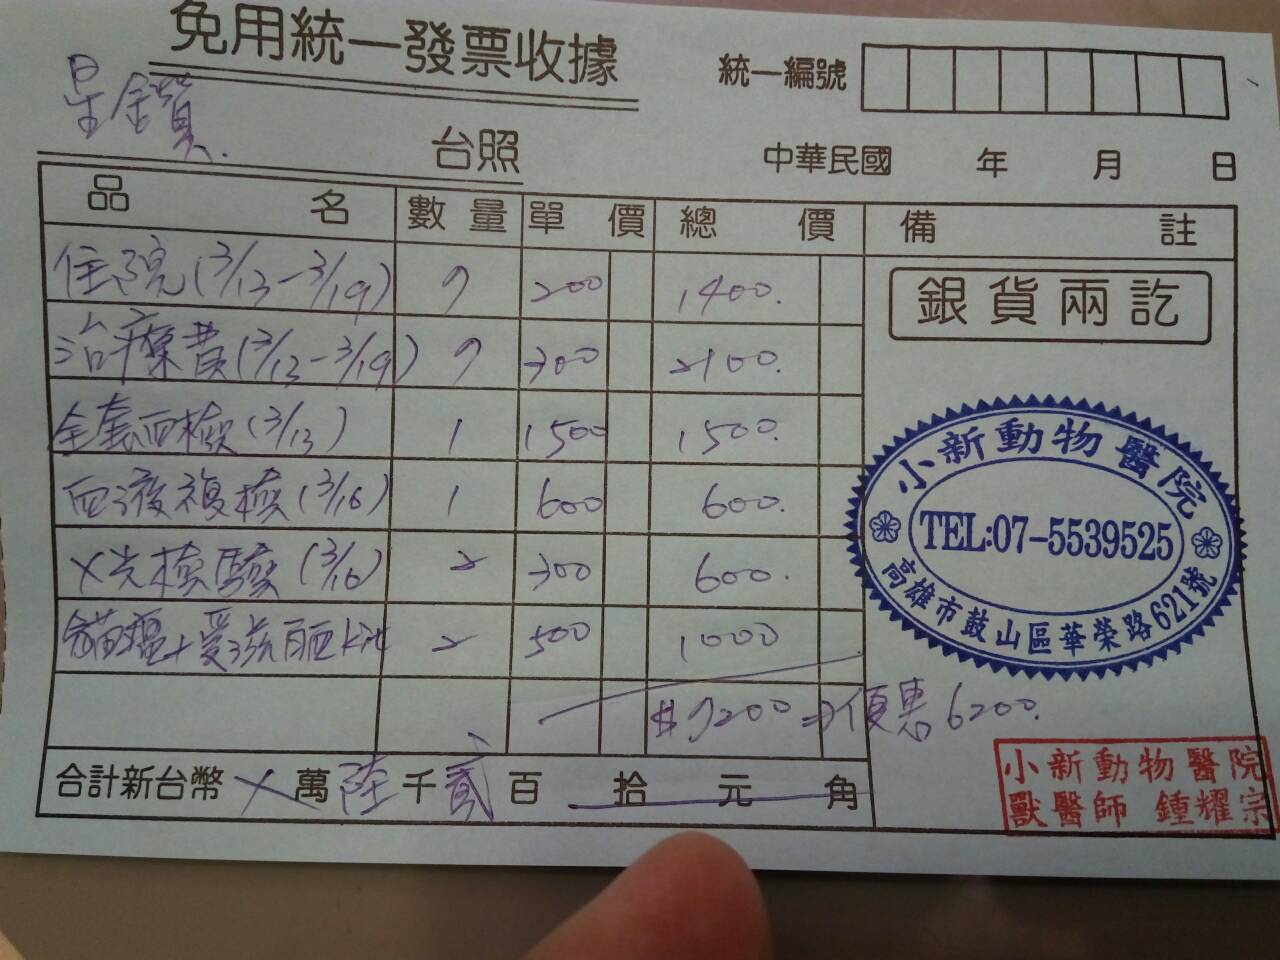 免用統一發票收據
統一編號
星鑽
台照
中華民國 年 月 日
品名 數量 單價 總價 備註
住院(3/13-3/19) 7 200 1400.
治療費(3/13-3/19) 7 300 2100.
全套血檢(3/13) 1 1500 1500.
血液複檢(3/16) 1 600 600.
X光檢驗(3/16) 2 300 600.
貓瘟+愛滋白血 2 500 1000
$7200⇒優惠6200.
合計新台幣 X 萬 陸 千 貳 百 拾 元 角
銀貨兩訖
小新動物醫院
TEL:07-5539525
高雄市鼓山區華榮路621號
小新動物醫院
獸醫師 鍾耀宗